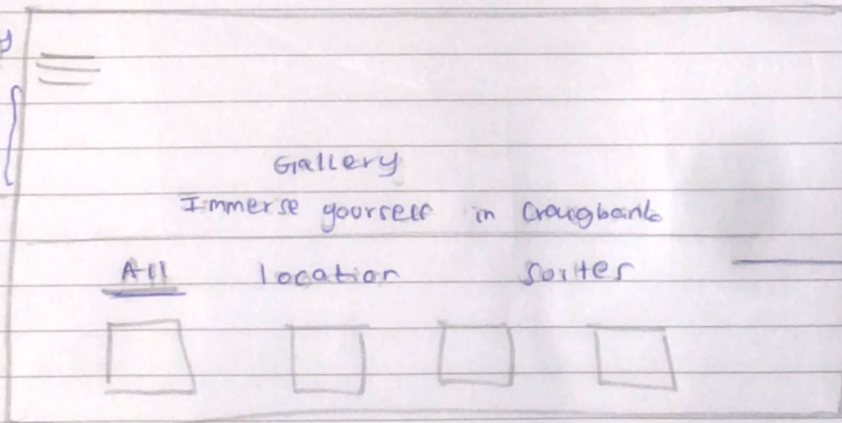 Gallery
Immerse yourself in Craigbank
All location Suites